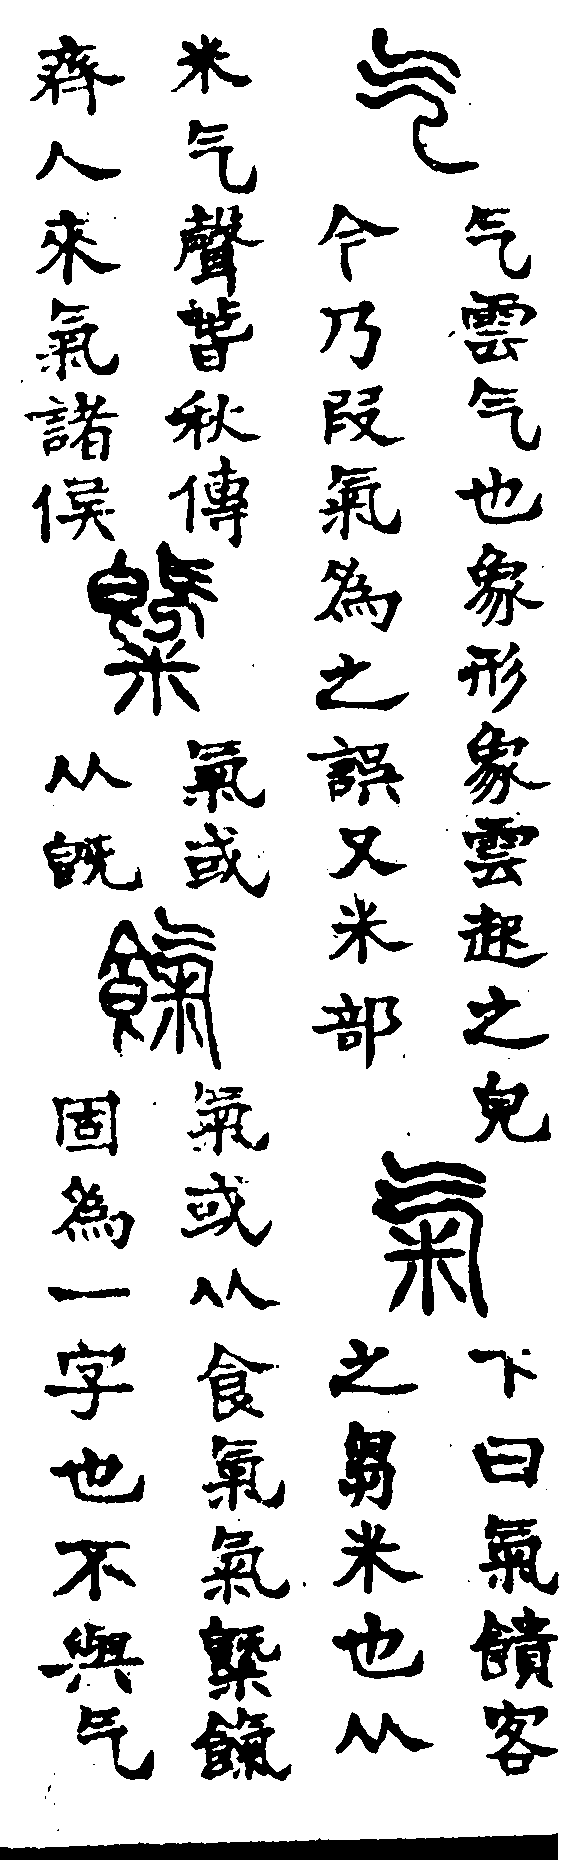 气
气雲气也象形象雲起之皃
今乃叚氣為之誤又米部
氣
下曰氣饋客
之芻米也从
米气聲萅秋傳
齊人來氣諸侯
䊠
氣或
从既
餼
氣或从食氣氣䊠餼
固為一字也不與气